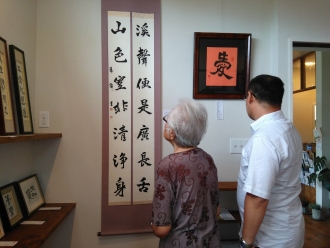 溪聲便是廣長舌
山色豈非清淨身
愛